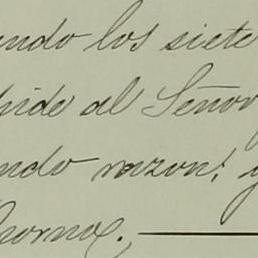 endo los siete
hide al Señor
ando razon! y